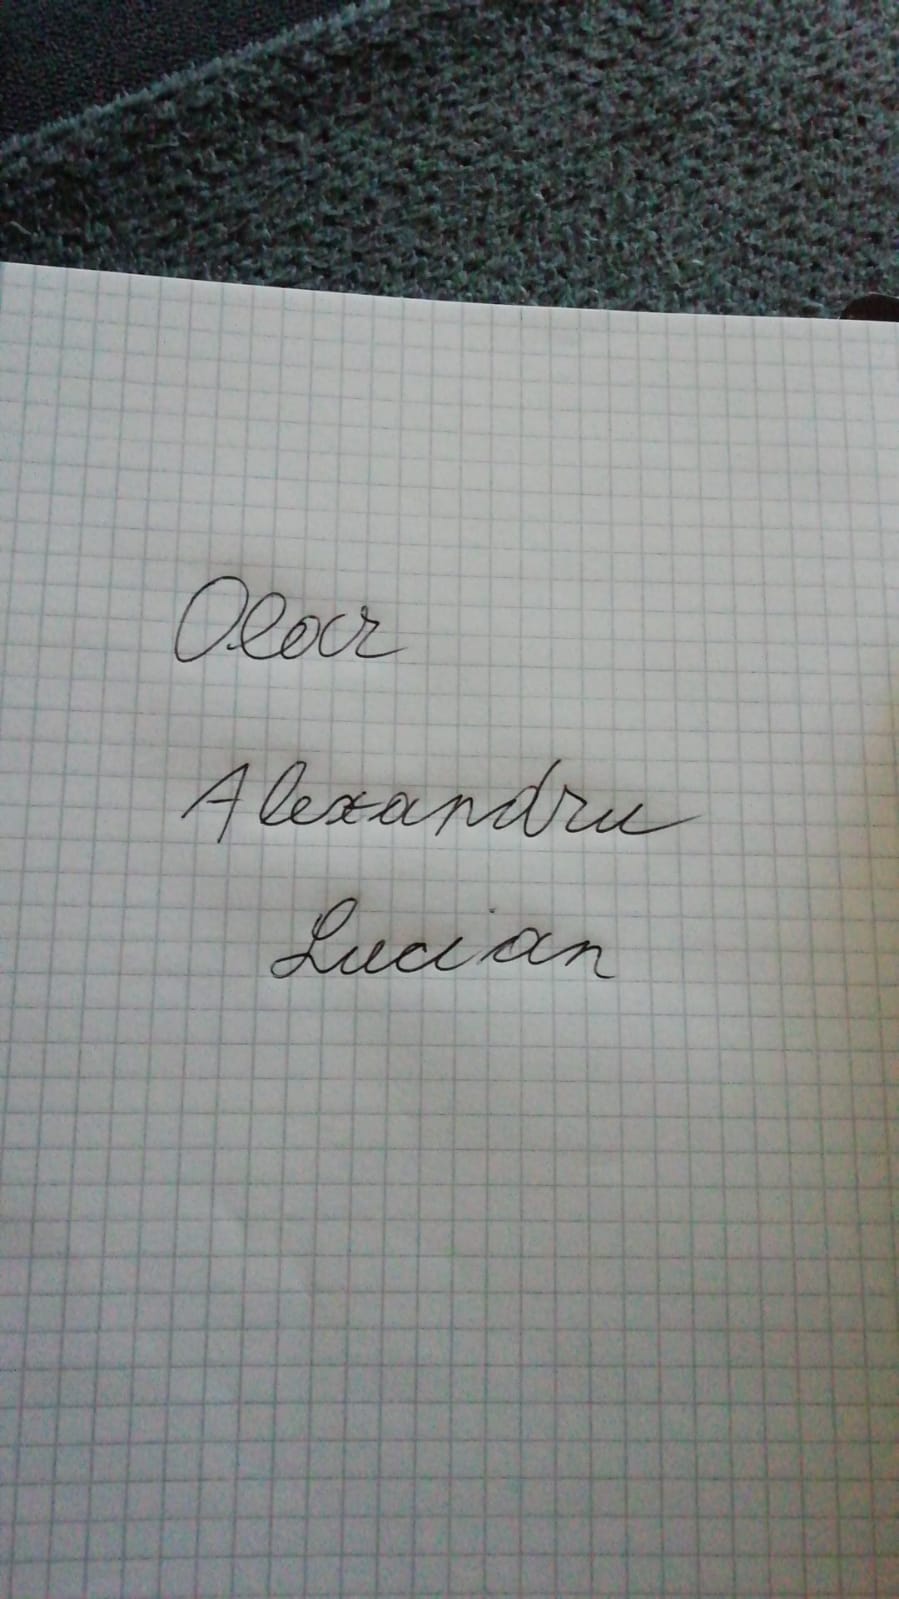 Olar
Alexandru
Lucian